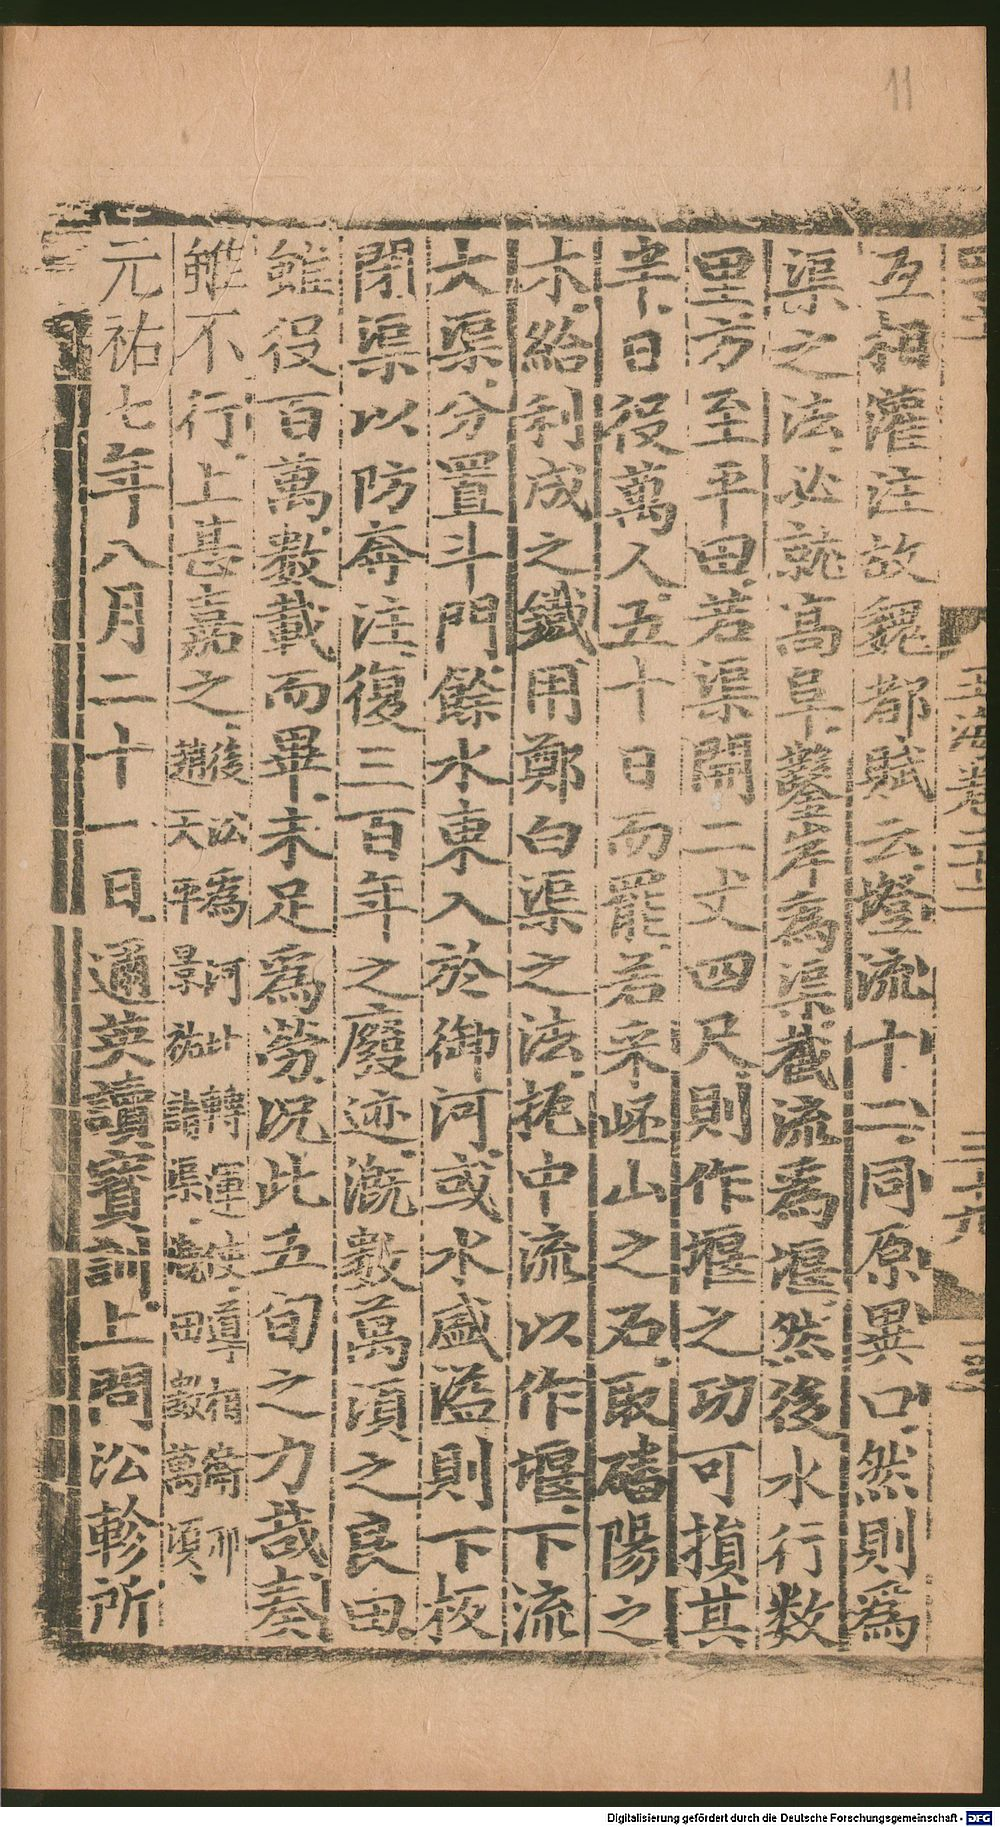 11
玉海卷二十二
三十六
互相灌注故魏都賦云墱流十二同原異口然則爲
渠之法必就高阜鑿岸為渠截流爲堰然後水行数
里方至平田若渠開二丈四尺則作堰之功可損其
半日役萬人五十日而罷若采岯山之石取磻陽之
木絡利成之鐵用鄭白渠之法扼中流以作堰下流
大渠分置斗門餘水東入於御河或水盛溢則下板
閉渠以防奔注復三百年之廢迹溉數萬頃之良田
雖役百萬數載而畢未足爲勞况此五旬之力哉奏
雖不行上甚嘉之後㳂爲河北轉運使導相衞邢
趙天平景祐諸渠溉田數萬頃
元祐七年八月二十一日邇英讀寳訓上問㳂軫所
Digitalisierung gefördert durch die Deutsche Forschungsgemeinschaft - DFG